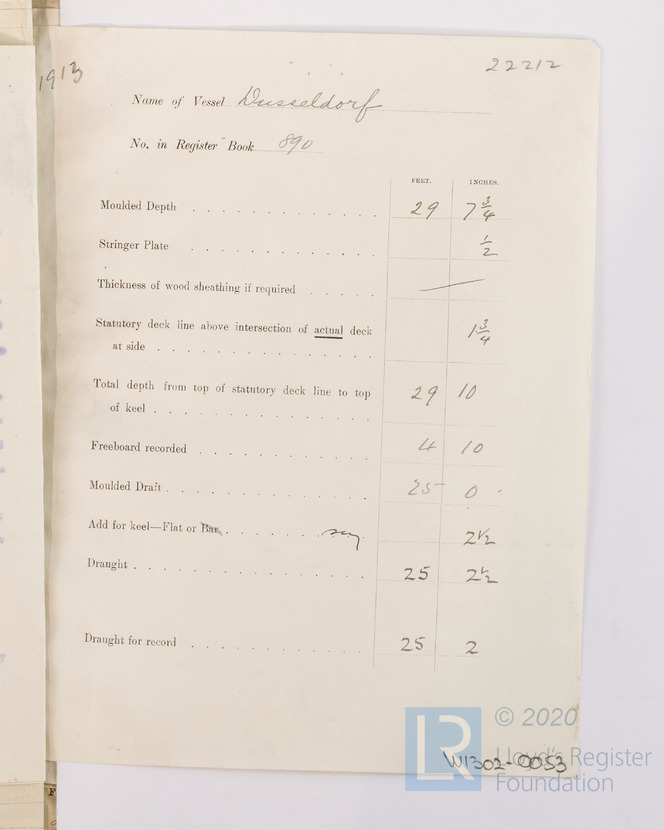 1913
22212
Name of Vessel Dusseldorf
No. in Register Book 890
FEET. INCHES.
Moulded Depth . . . . . . . . . . . . . 29 7 3/4
Stringer Plate . . . . . . . . . . . . . 1/2
Thickness of wood sheathing if required . . . . . —
Statutory deck line above intersection of actual deck
at side . . . . . . . . . . . . . . . 1 3/4
Total depth from top of statutory deck line to top
of keel . . . . . . . . . . . . . . . 29 10
Freeboard recorded . . . . . . . . . . . . 4 10
Moulded Draft . . . . . . . . . . . . . . 25 0
Add for keel—Flat or Bar . . . . . . say 2 1/2
Draught . . . . . . . . . . . . . . . . 25 2 1/2
Draught for record . . . . . . . . . . . . 25 2
LR
© 2020
Lloyd's Register
Foundation
W1302-0053